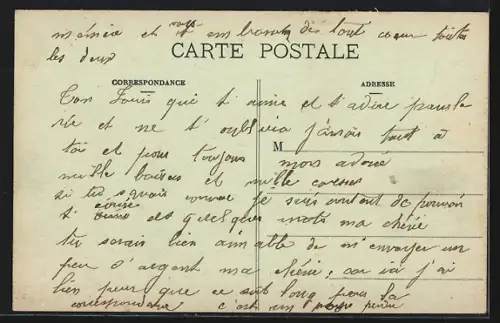 et vous embrassant dès tout coeur toutes
les deux
CARTE POSTALE
CORRESPONDANCE
ADRESSE
Ton Louis que t aime et t'adore pour la
vie et ne t'oubliera jamais tout à
M
toi et pour toujours mon adorée
mille baises et mille caresses
si tu savais comme je suis content de pouvoir
t écrire ces quelques mots ma chérie
tu serais bien aimable de m'envoyer un
peu d'argent ma chérie, car ici j'ai
bien peur que ce soit long pour la
correspondance c'est un peu perdu